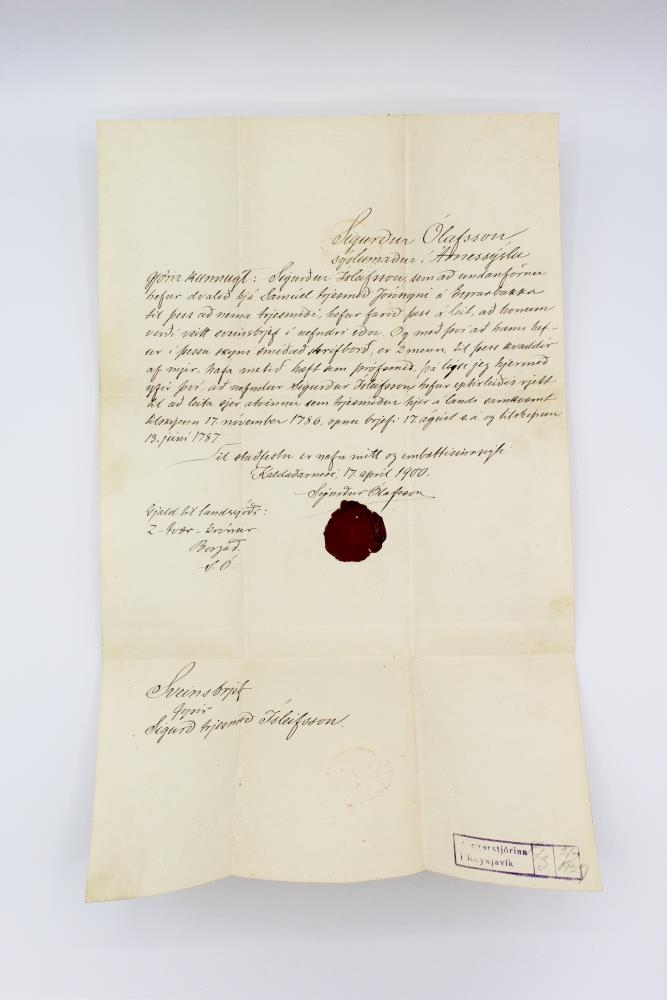 Sigurður Ólafsson
sýslumaður í Árnessýslu
gjörir kunnugt: Sigurður Ísleifsson, sem að undanförnu
hefur dvalið hjá Samúel trjesmið Jónssyni á Eyrarbakka
til þess að nema trjesmíði, hefur farið þess á leit, að honum
verði veitt sveinsbrjef í nefndri iðn. Og með því að hann hef-
ur í þessu skyni smíðað skrifborð, er 2 menn, til þess kvaddir
af mjer, hafa metið hæft sem prófsmíð, þá lýsi jeg hjermeð
yfir því að nefndur Sigurður Ísleifsson hefur eptirleiðis rjett
til að leita sjer atvinnu sem trjesmiður hjer á landi samkvæmt
tilskipun 17. nóvember 1786, opnu brjefi 17. apríl s.á og tilskipun
13. júní 1787
Til staðfestu er nafn mitt og embættisinnsigli.
Kaldaðarnesi, 17. apríl 1900.
Sigurður Ólafsson
Gjald til landssjóðs:
2 - tvær - krónur.
Borgað.
S. Ó.
Sveinsbrjef
fyrir
Sigurð trjesmið Ísleifsson.
Borgarstjórinn
í Reykjavík